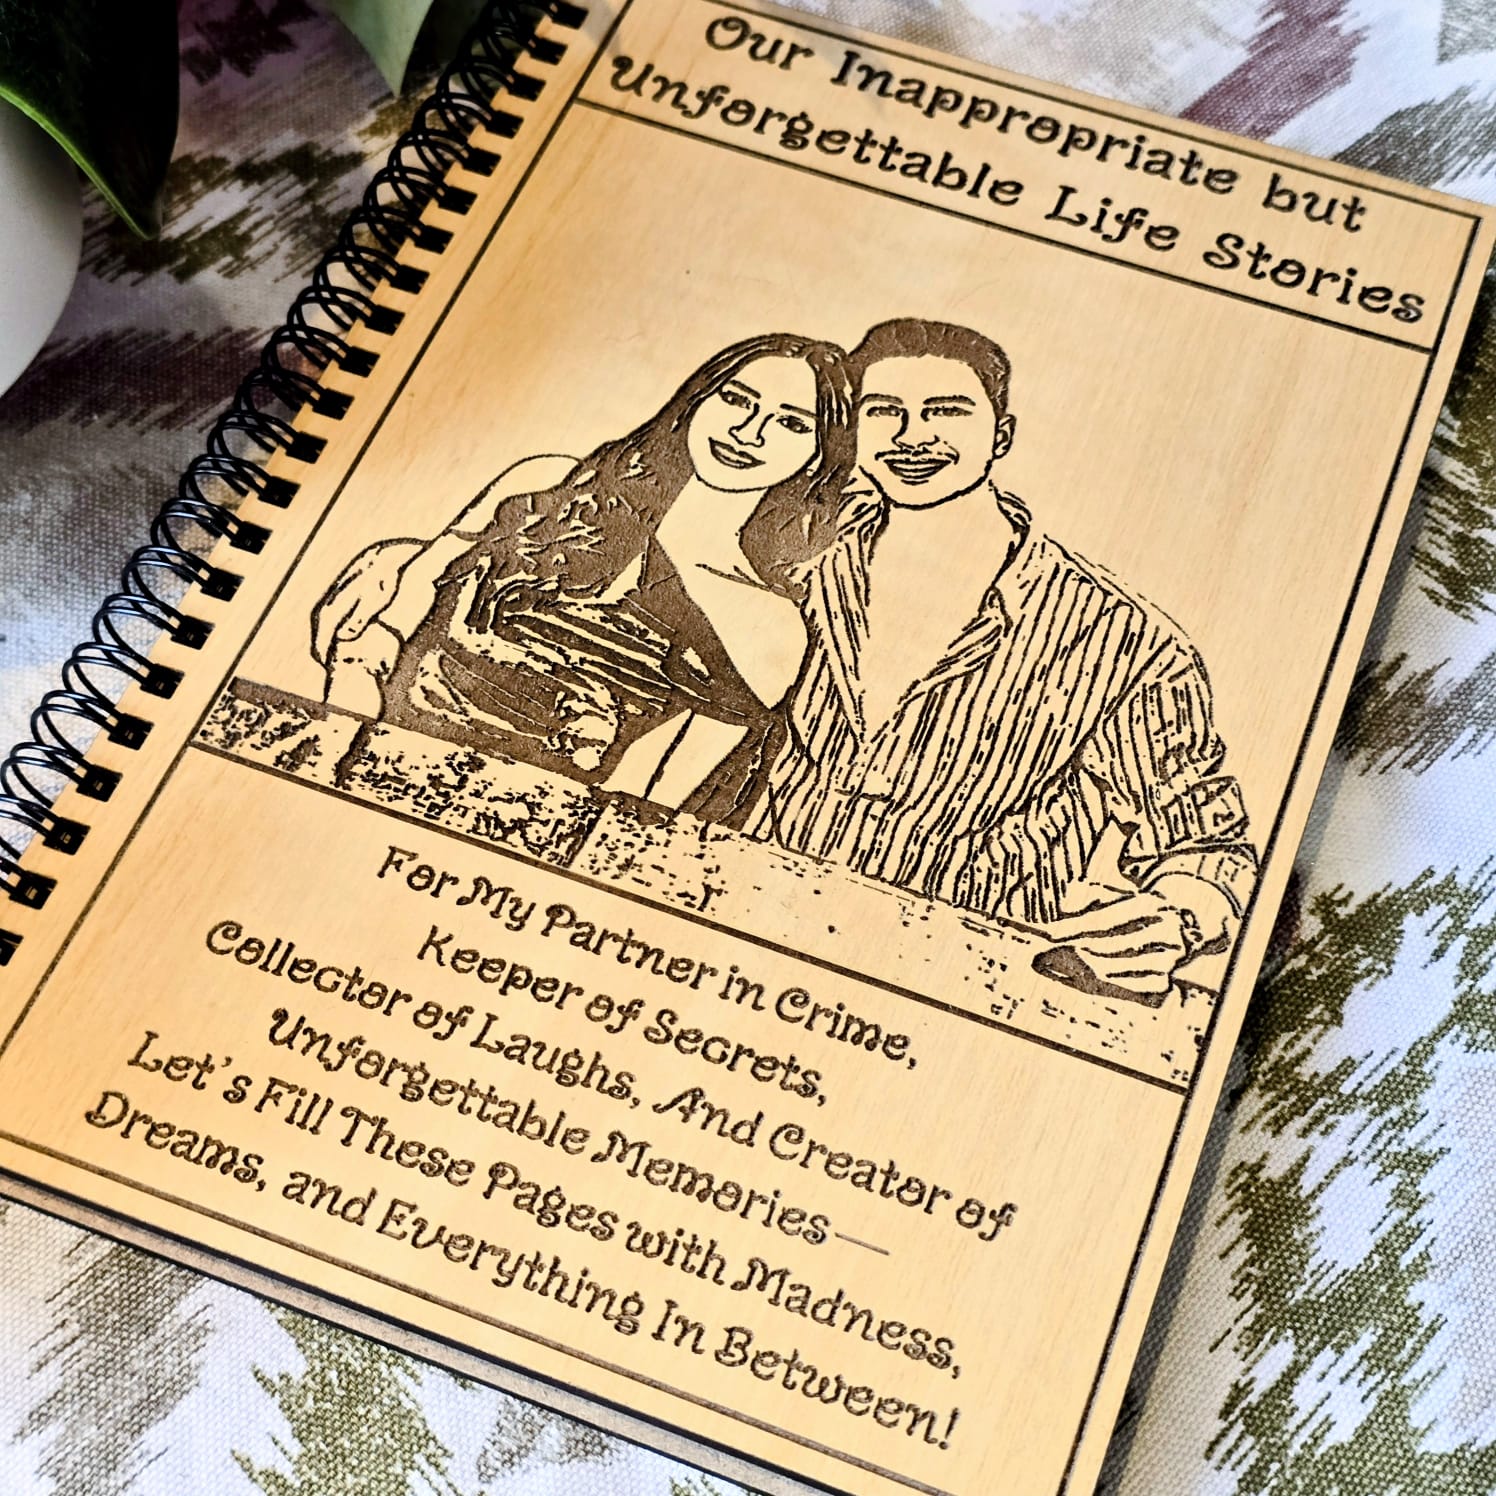 Our Inappropriate but
Unforgettable Life Stories
For My Partner in Crime,
Keeper of Secrets,
Collector of Laughs, And Creator of
Unforgettable Memories—
Let's Fill These Pages with Madness,
Dreams, and Everything In Between!